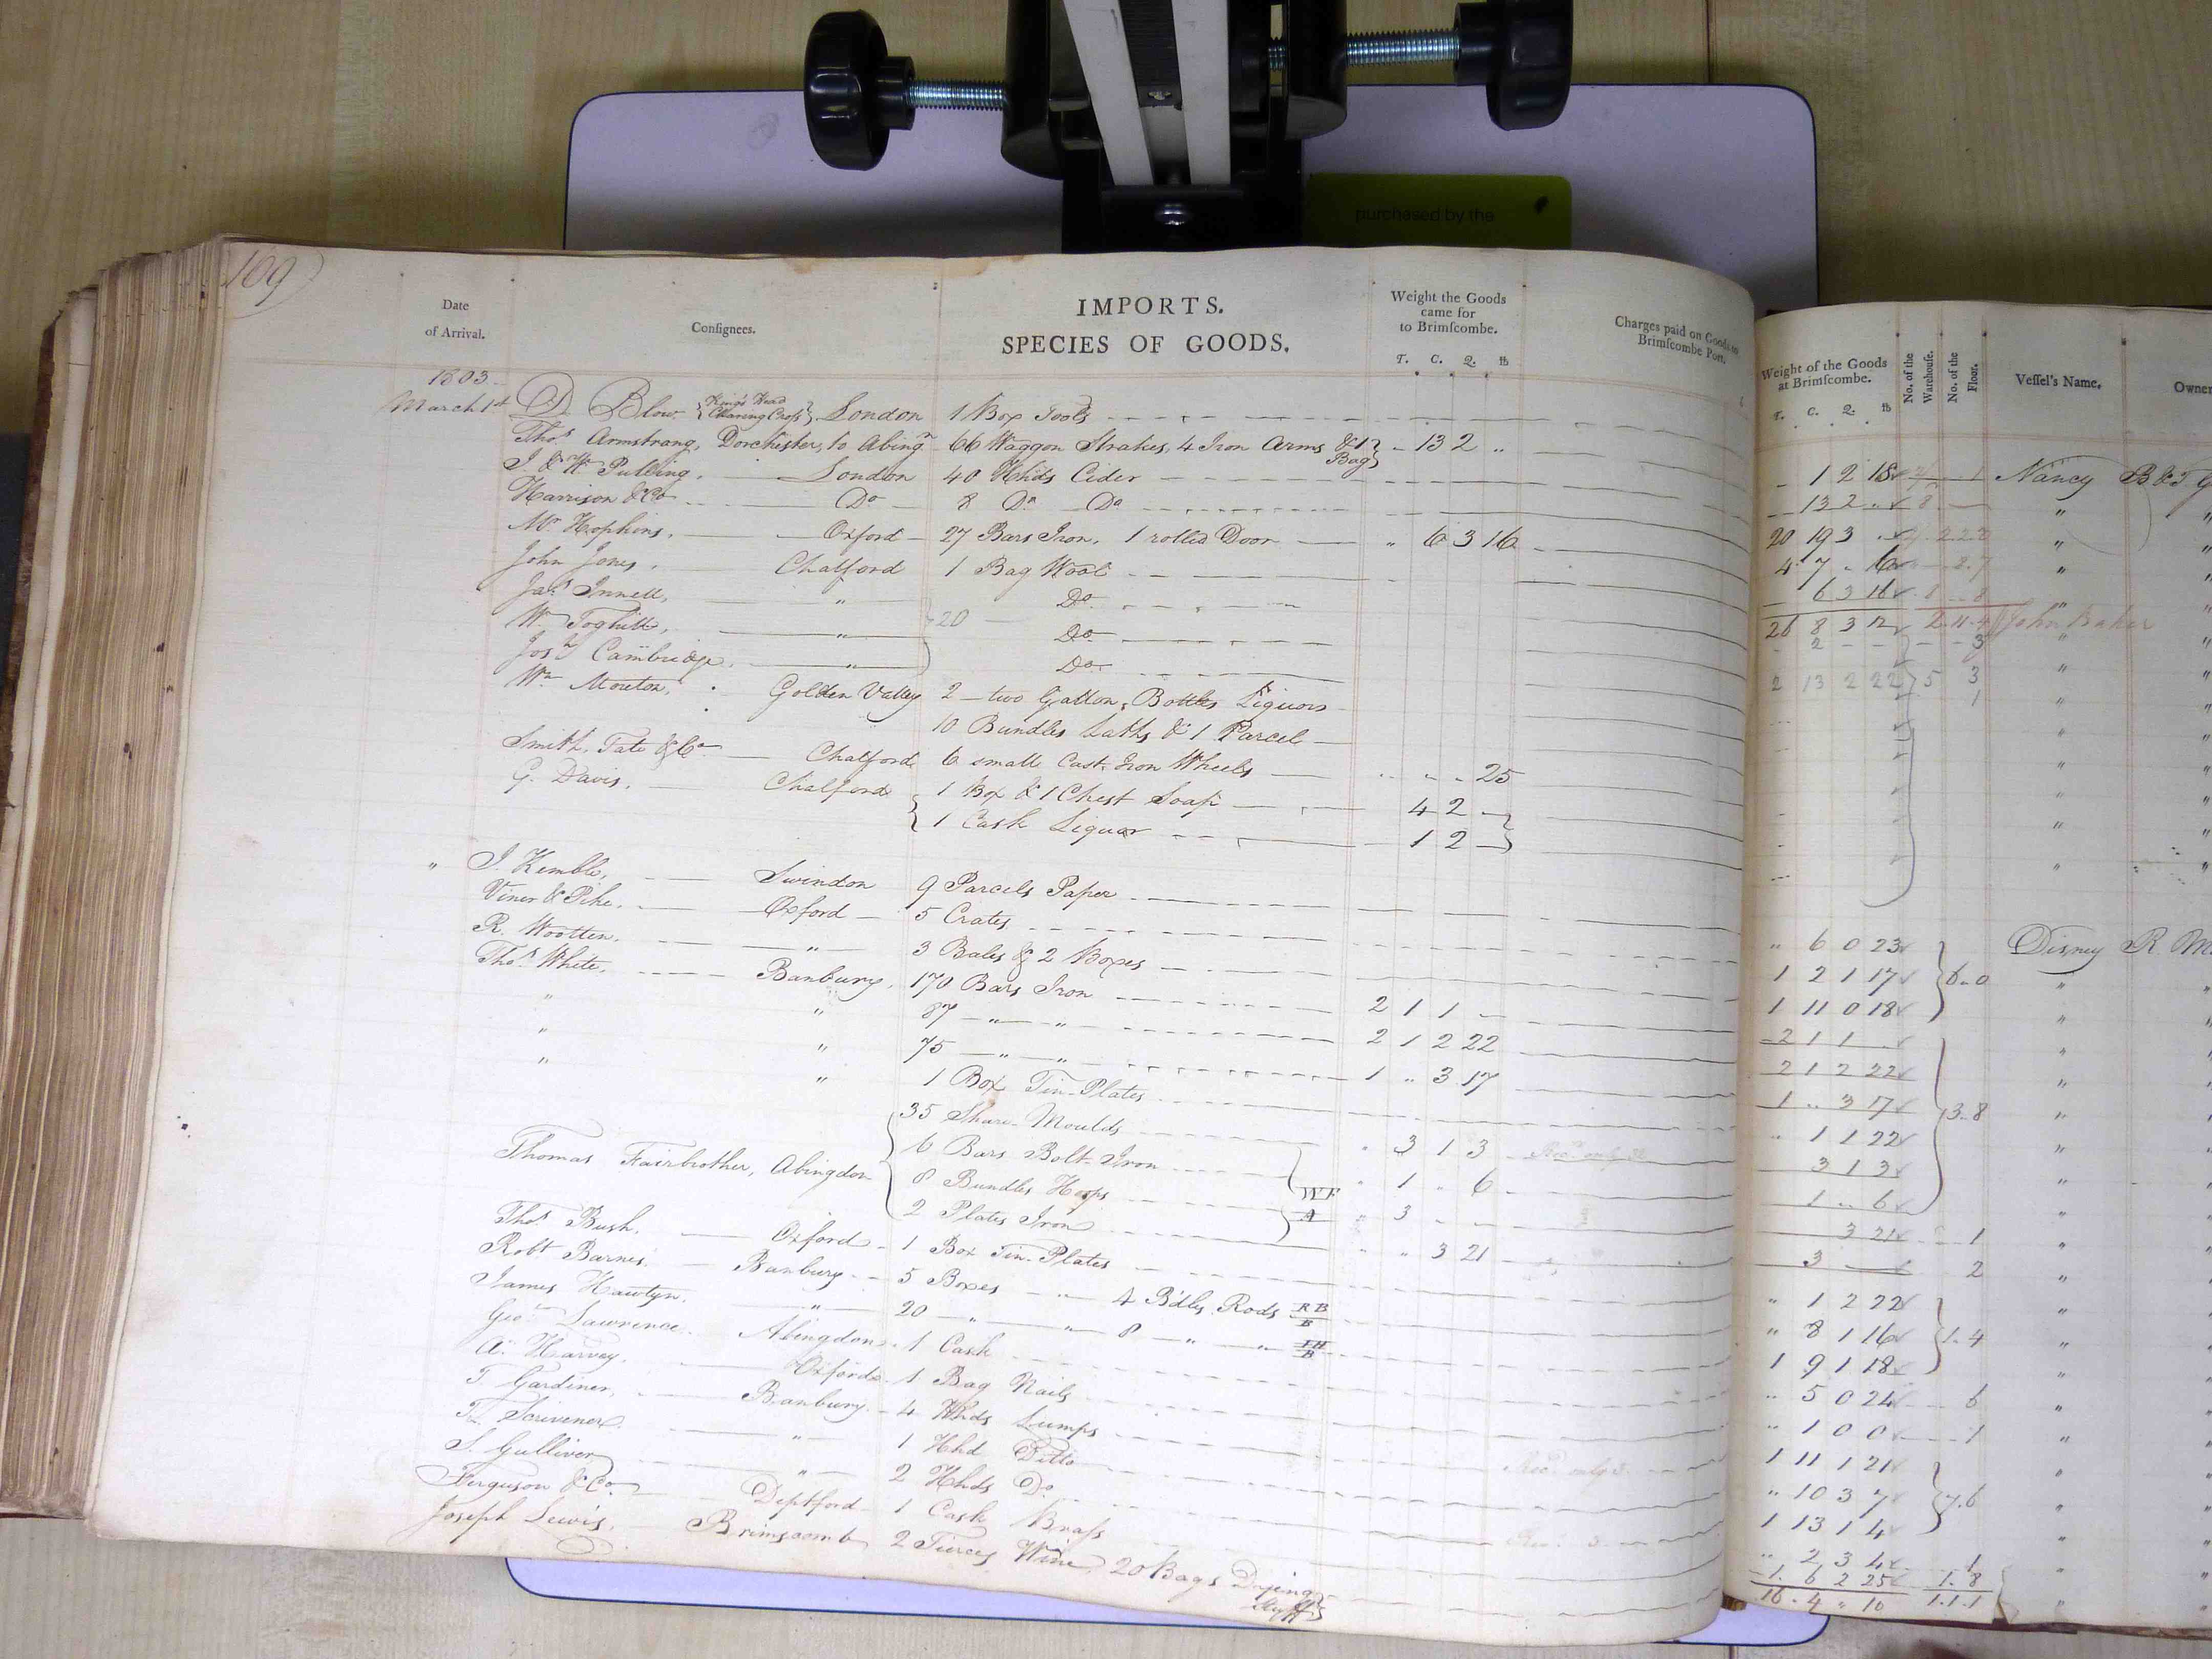 purchased by the
109
Date of Arrival.
Consignees.
IMPORTS.
SPECIES OF GOODS.
Weight the Goods came for to Brimscombe.
T. C. Q. lb
Charges paid on Goods to Brimscombe Port.
1803
March 1st D. Blow {King's Head Charing Cross} London 1 Box Tools
Thos. Armstrong, Dorchester, to Abingn. 66 Waggon Strakes, 4 Iron Arms & 1 Bag} - 13 2 "
J. & W. Pulling, London 40 Hhds Cider
Harrison & Co Do 8 Do Do
Mr. Hopkins, Oxford 27 Bars Iron, 1 rolled Door " 6 3 16
John Jones, Chalford 1 Bag Wool
Jas. Innell, " } 20 Do
Wm. Toghill, " Do
Josh. Cambridge, " Do
Wm. Mouton, Golden Valley 2 two Gallon Bottles Liquors
10 Bundles Laths & 1 Parcel
Smith, Tate & Co Chalford 6 small Cast Iron Wheels " " - 25
G. Davis, Chalford { 1 Box & 1 Chest Soap 4 2 -
{ 1 Cask Liquor 1 2 - }
" J. Kemble, Swindon 9 Parcels Paper
Viner & Pike, Oxford 5 Crates
R. Wootten, " 3 Bales & 2 Boxes
Thos. White, Banbury, 170 Bars Iron 2 1 1 -
" " 87 " " 2 1 2 22
" " 75 " " 1 " 3 17
" " 1 Box Tin Plates
35 Share Moulds " 3 1 3
Thomas Fairbrother, Abingdon { 6 Bars Bolt Iron " 1 " 6
8 Bundles Hoops " 3 " "
2 Plates Iron " " 3 21
Thos. Bush, Oxford 1 Box Tin Plates
Robt Barnes, Banbury 5 Boxes " 4 Bdls. Rods RB B
James Hawtyn, " 20 " " 8 " " IH B
Geo. Lawrence, Abingdon 1 Cask
A. Harvey, Oxford 1 Bag Nails
T. Gardiner, Banbury 4 Hhds Lumps
T. Scrivener " 1 Hhd Ditto
S. Gulliver " 2 Hhds Do
Ferguson & Co Deptford 1 Cask Brass
Joseph Lewis, Brimscomb 2 Tierces Wine, 20 Bags Dyeing Stuff }
Weight of the Goods at Brimscombe.
T. C. Q. lb
No. of the Warehouse.
No. of the Floor.
Vessel's Name.
Owner
- 1 2 18 1 Nancy
- 13 2 8 "
20 19 3 "
4 7 - 16 "
6 3 16 "
26 8 3 12 John Baker
- 2 - - 3 "
2 13 2 22 5 3 "
1 "
" 6 0 23 Disney R. M
1 2 1 17 6-0 "
1 11 0 18 "
2 1 1 - "
2 1 2 22 "
1 " 3 17 13-8 "
" 1 1 22 "
3 1 3 "
1 " 6 "
3 21 1 "
3 2 "
" 1 2 22 "
" 8 1 16 1-4 "
1 9 1 18 "
" 5 0 24 6 "
" 1 0 0 1 "
1 11 1 21 "
" 10 3 7 7.6 "
1 13 1 4 "
" 2 3 4 1 "
1 6 2 25 1.8 "
16 4 " 10 1.1.1 "